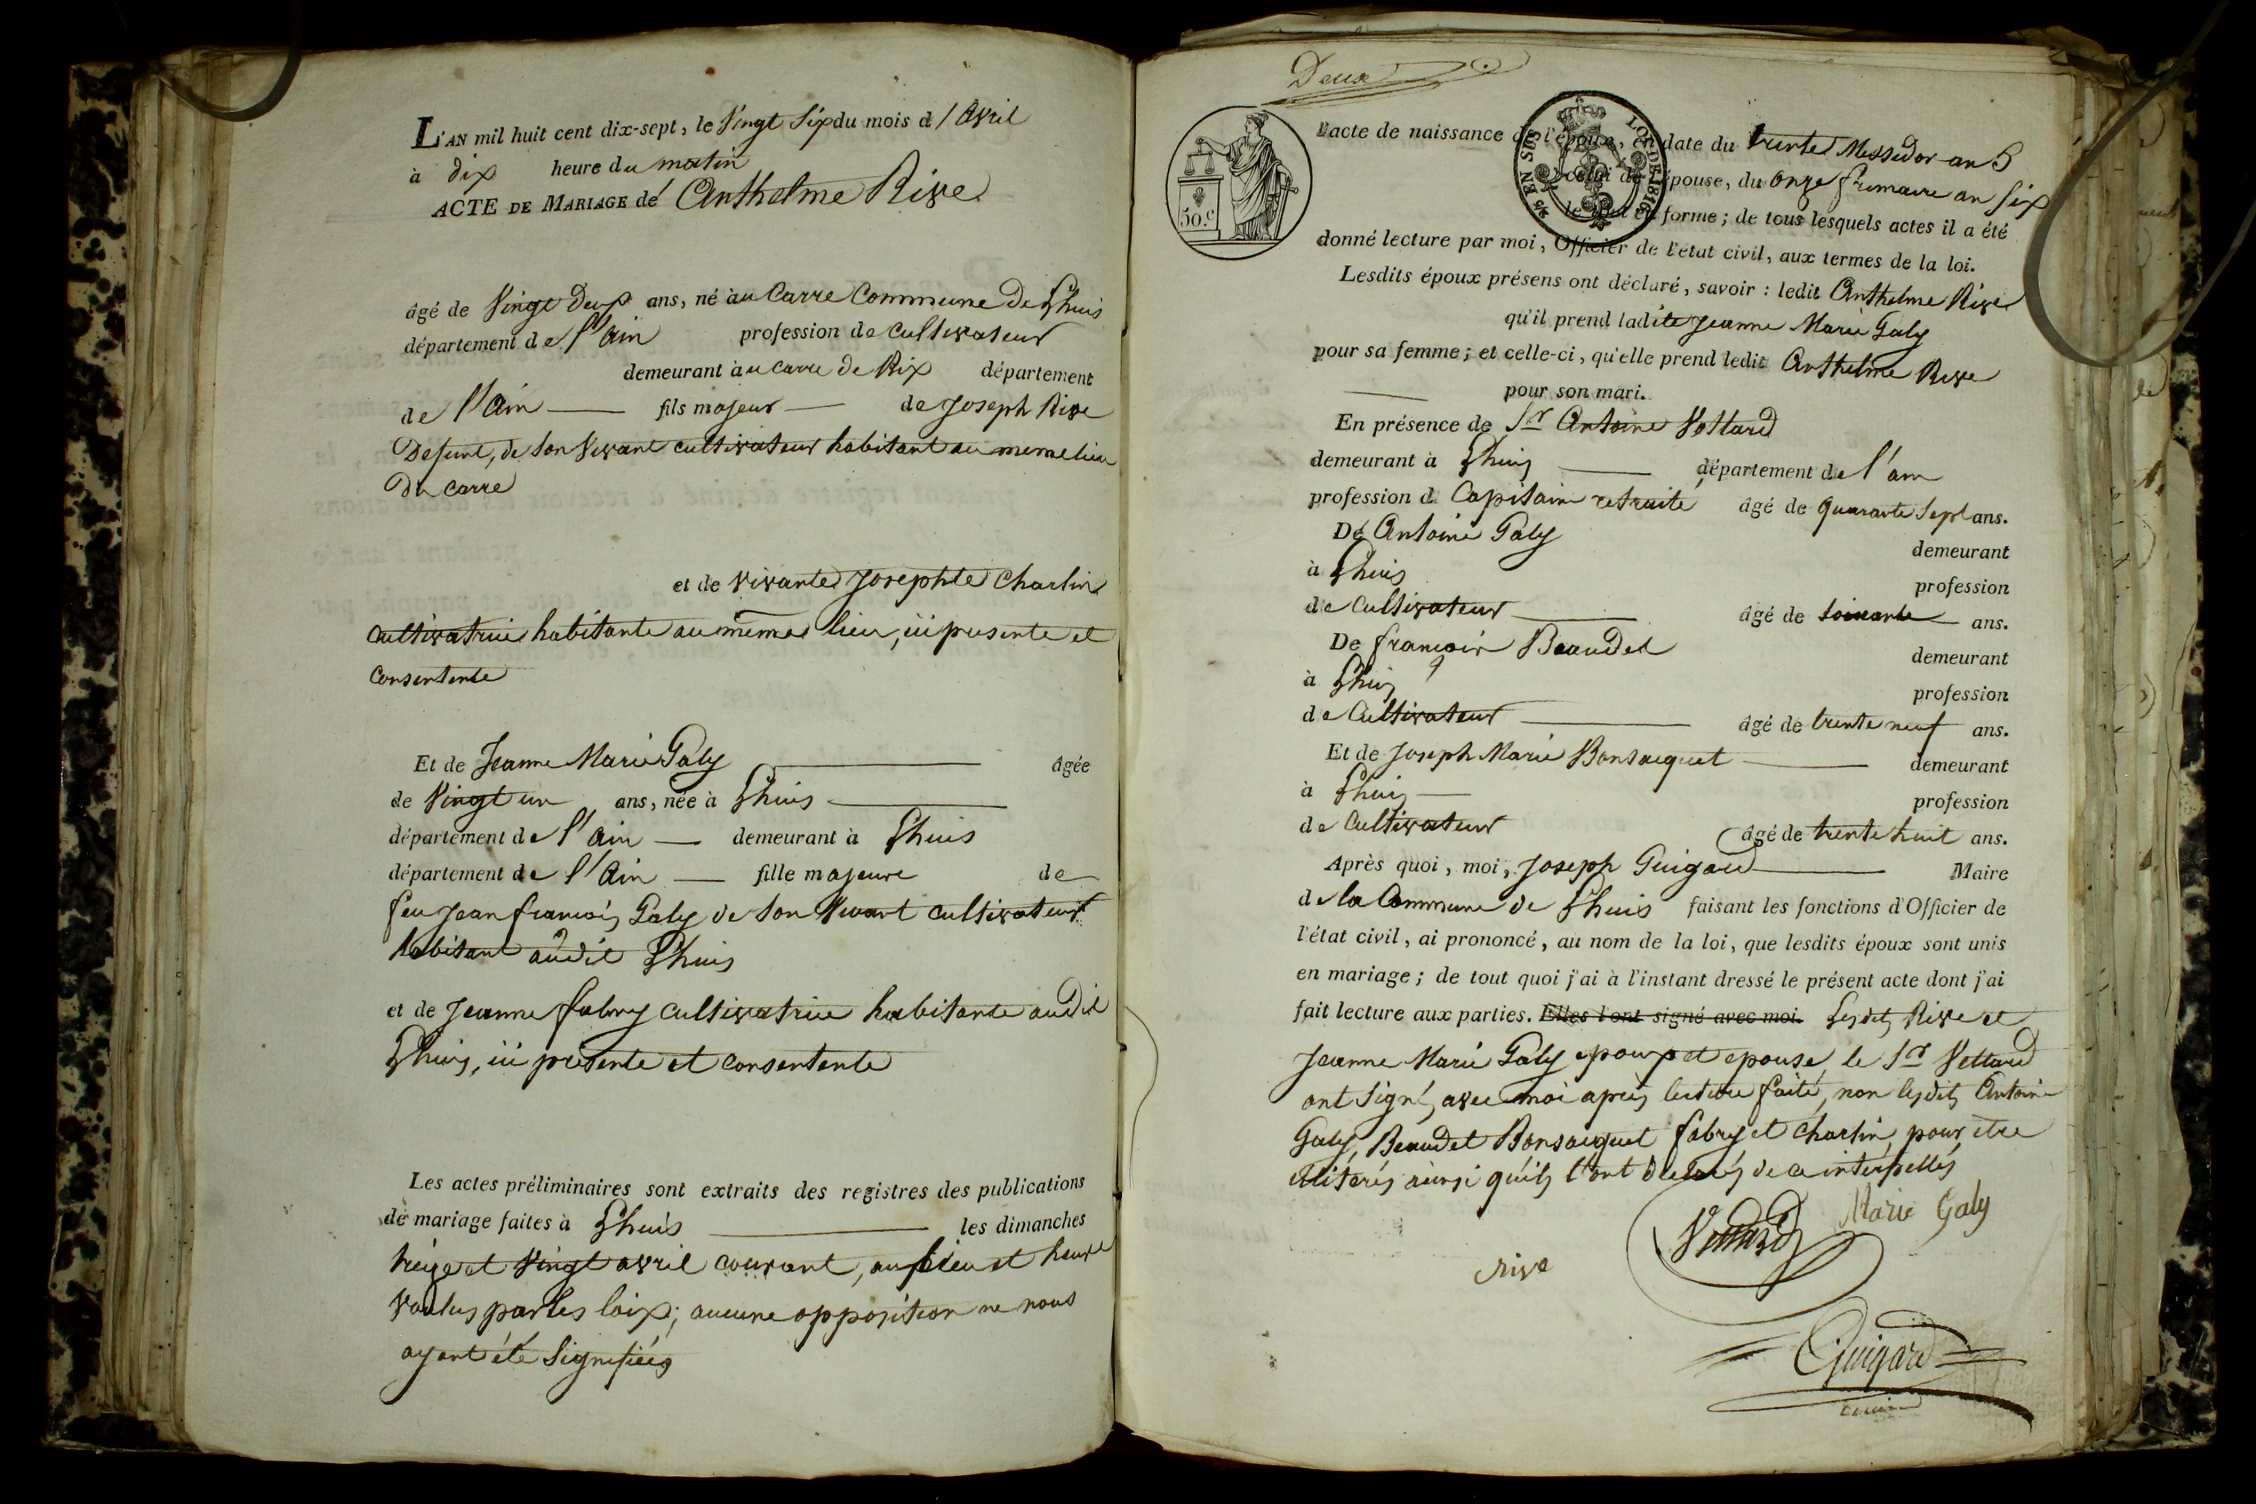 L'AN mil huit cent dix-sept, le Vingt Six du mois d'Avril
à dix heure du matin
ACTE DE MARIAGE de Anthelme Rive
âgé de Vingt Deux ans, né à au Carre Commune De Lhuis
département de l'Ain profession de cultivateur
demeurant à au Carre De Rix département
de l'Ain fils majeur de Joseph Rive
Defunt, de Son Vivant cultivateur habitant au meme lieu
Du Carre
et de vivante Josephte Charlin
cultivatrice habitante au même lieu, ici presente et
consentente
Et de Jeanne Marie Galy âgée
de Vingt un ans, née à Lhuis
département de l'Ain demeurant à Lhuis
département de l'Ain fille majeure de
feu Jean françois Galy de Son Vivant cultivateur
habitant audit Lhuis
et de Jeanne fabry cultivatrice habitante audit
Lhuis, ici presente et consentente
Les actes préliminaires sont extraits des registres des publications
de mariage faites à Lhuis les dimanches
treize et Vingt avril courant, aux lieu et heure
voulus par les loix; aucune opposition ne nous
ayant été Signifiées
Deux
50.c
EN SUS LOI DE 1816
L'acte de naissance de l'époux, en date du trente Messidor an 5
celui de l'épouse, du onze frimaire an Six
le tout en forme; de tous lesquels actes il a été
donné lecture par moi, Officier de l'état civil, aux termes de la loi.
Lesdits époux présens ont déclaré, savoir : ledit Anthelme Rive
qu'il prend ladite Jeanne Marie Galy
pour sa femme; et celle-ci, qu'elle prend ledit Anthelme Rive
pour son mari.
En présence de Sr Antoine Vettard
demeurant à Lhuis département de l'ain
profession de Capitaine retraité âgé de quarante Sept ans.
De Antoine Galy demeurant
à Lhuis profession
de Cultivateur âgé de Soixante ans.
De françois Beaudet demeurant
à Lhuis profession
de Cultivateur âgé de trente neuf ans.
Et de Joseph Marie Bonsacquet demeurant
à Lhuis profession
de Cultivateur âgé de trente huit ans.
Après quoi, moi, Joseph Guigard Maire
de la Commune de Lhuis faisant les fonctions d'Officier de
l'état civil, ai prononcé, au nom de la loi, que lesdits époux sont unis
en mariage; de tout quoi j'ai à l'instant dressé le présent acte dont j'ai
fait lecture aux parties. Elles l'ont signé avec moi. Lesdits Rive et
Jeanne Marie Galy epoux et epouse, le Sr Vettard
ont Signé, avec moi après lecture faite, non lesdits Antoine
Galy, Beaudet Bonsacquet fabry et Charlin, pour etre
illitérés ainsi qu'ils l'ont déclarés de ce interpellés
Vettard Marie Galy
rive
Guigard
maire